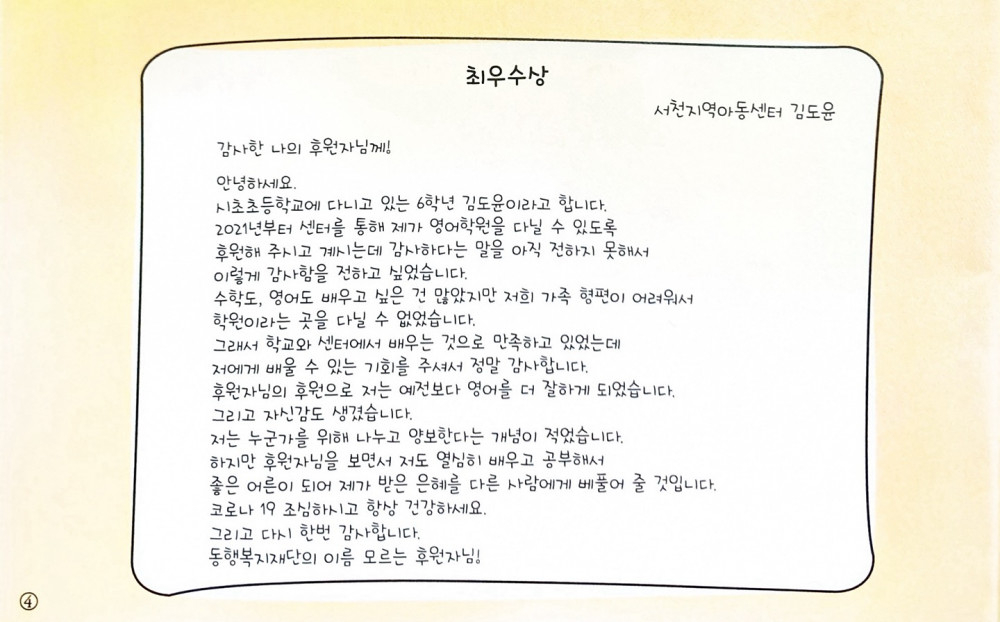 최우수상
서천지역아동센터 김도윤
감사한 나의 후원자님께!
안녕하세요.
시초초등학교에 다니고 있는 6학년 김도윤이라고 합니다.
2021년부터 센터를 통해 제가 영어학원을 다닐 수 있도록
후원해 주시고 계시는데 감사하다는 말을 아직 전하지 못해서
이렇게 감사함을 전하고 싶었습니다.
수학도, 영어도 배우고 싶은 건 많았지만 저희 가족 형편이 어려워서
학원이라는 곳을 다닐 수 없었습니다.
그래서 학교와 센터에서 배우는 것으로 만족하고 있었는데
저에게 배울 수 있는 기회를 주셔서 정말 감사합니다.
후원자님의 후원으로 저는 예전보다 영어를 더 잘하게 되었습니다.
그리고 자신감도 생겼습니다.
저는 누군가를 위해 나누고 양보한다는 개념이 적었습니다.
하지만 후원자님을 보면서 저도 열심히 배우고 공부해서
좋은 어른이 되어 제가 받은 은혜를 다른 사람에게 베풀어 줄 것입니다.
코로나 19 조심하시고 항상 건강하세요.
그리고 다시 한번 감사합니다.
동행복지재단의 이름 모르는 후원자님!
④